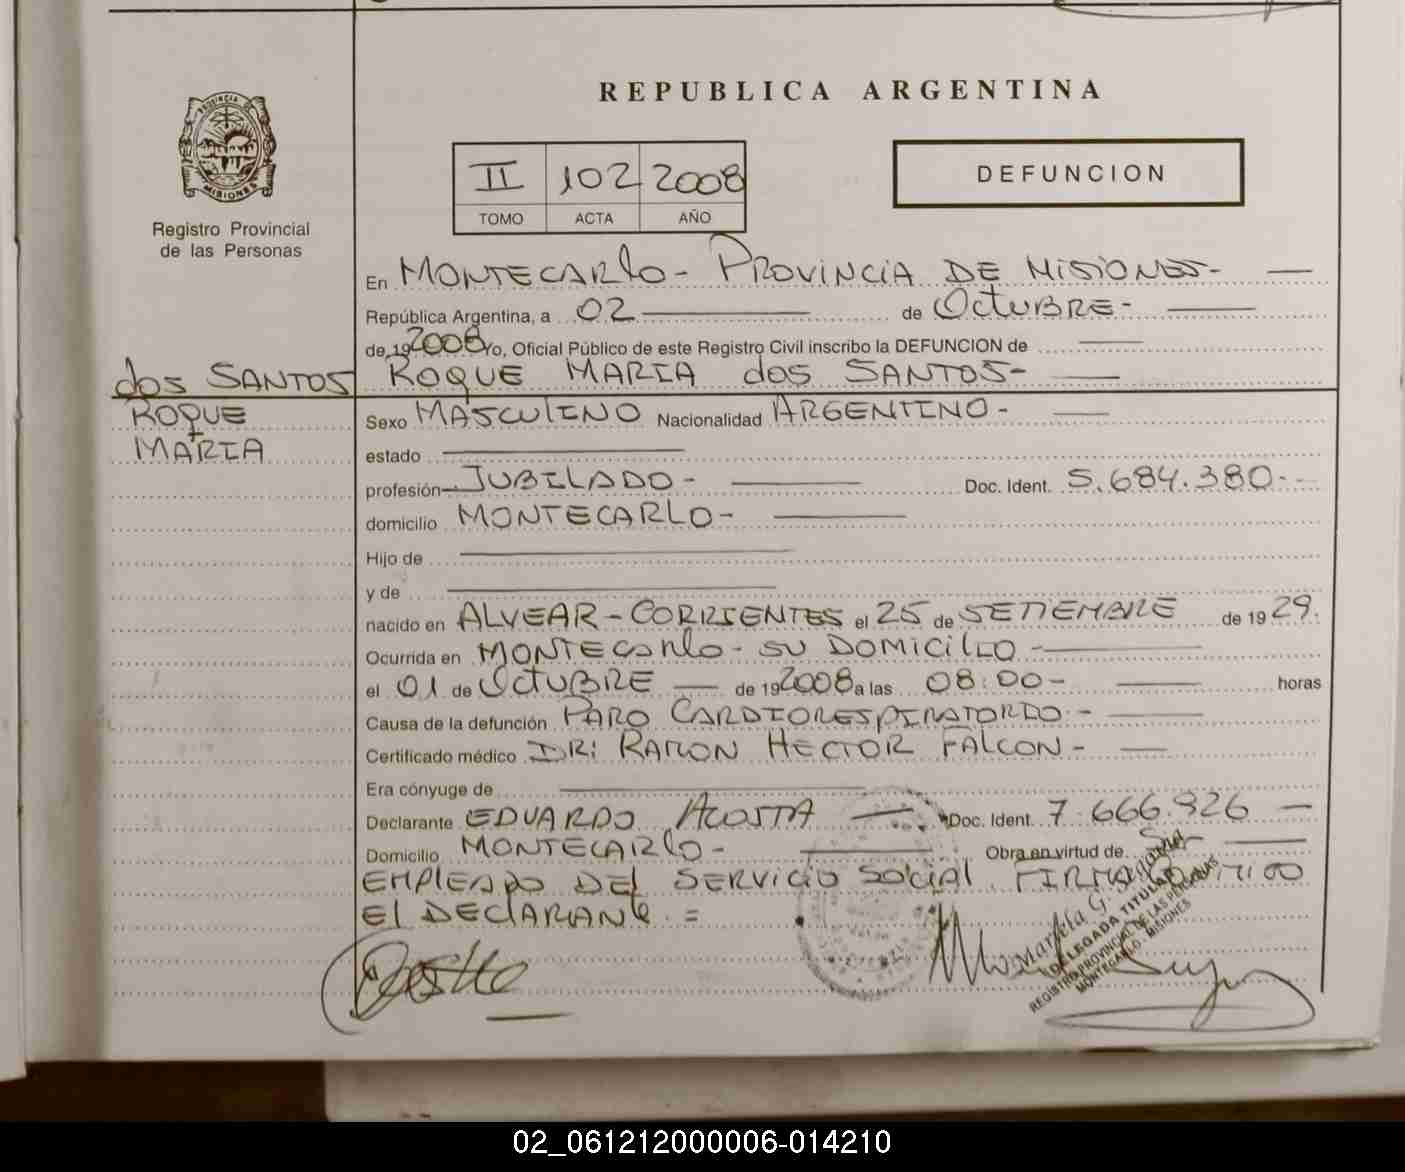 REPUBLICA ARGENTINA
PROVINCIA DE
MISIONES
Registro Provincial
de las Personas
II 102 2008
TOMO ACTA AÑO
DEFUNCION
En MONTECARLO - PROVINCIA DE MISIONES -
República Argentina, a 02 de OCTUBRE -
de 19 2008 Yo, Oficial Público de este Registro Civil inscribo la DEFUNCION de
dos SANTOS
ROQUE MARIA dos SANTOS -
ROQUE
MARIA
Sexo MASCULINO Nacionalidad ARGENTINO -
estado
profesión JUBILADO - Doc. Ident. 5.684.380 -
domicilio MONTECARLO -
Hijo de
y de
nacido en ALVEAR - CORRIENTES el 25 de SETIEMBRE de 19 29.
Ocurrida en MONTECARLO - SU DOMICILIO -
el 01 de OCTUBRE de 19 2008 a las 08:00 - horas
Causa de la defunción PARO CARDIORESPIRATORIO -
Certificado médico DR: RAMON HECTOR FALCON -
Era cónyuge de
Declarante EDUARDO ACOSTA Doc. Ident. 7.666.926
Domicilio MONTECARLO - Obra en virtud de Ser
EMPLEADO DEL SERVICIO SOCIAL. FIRMA
EL DECLARANTE. =
Mariela G.
DELEGADA TITULAR
REGISTRO PROVINCIAL DE LAS PERSONAS
MONTECARLO - MISIONES
02_061212000006-014210